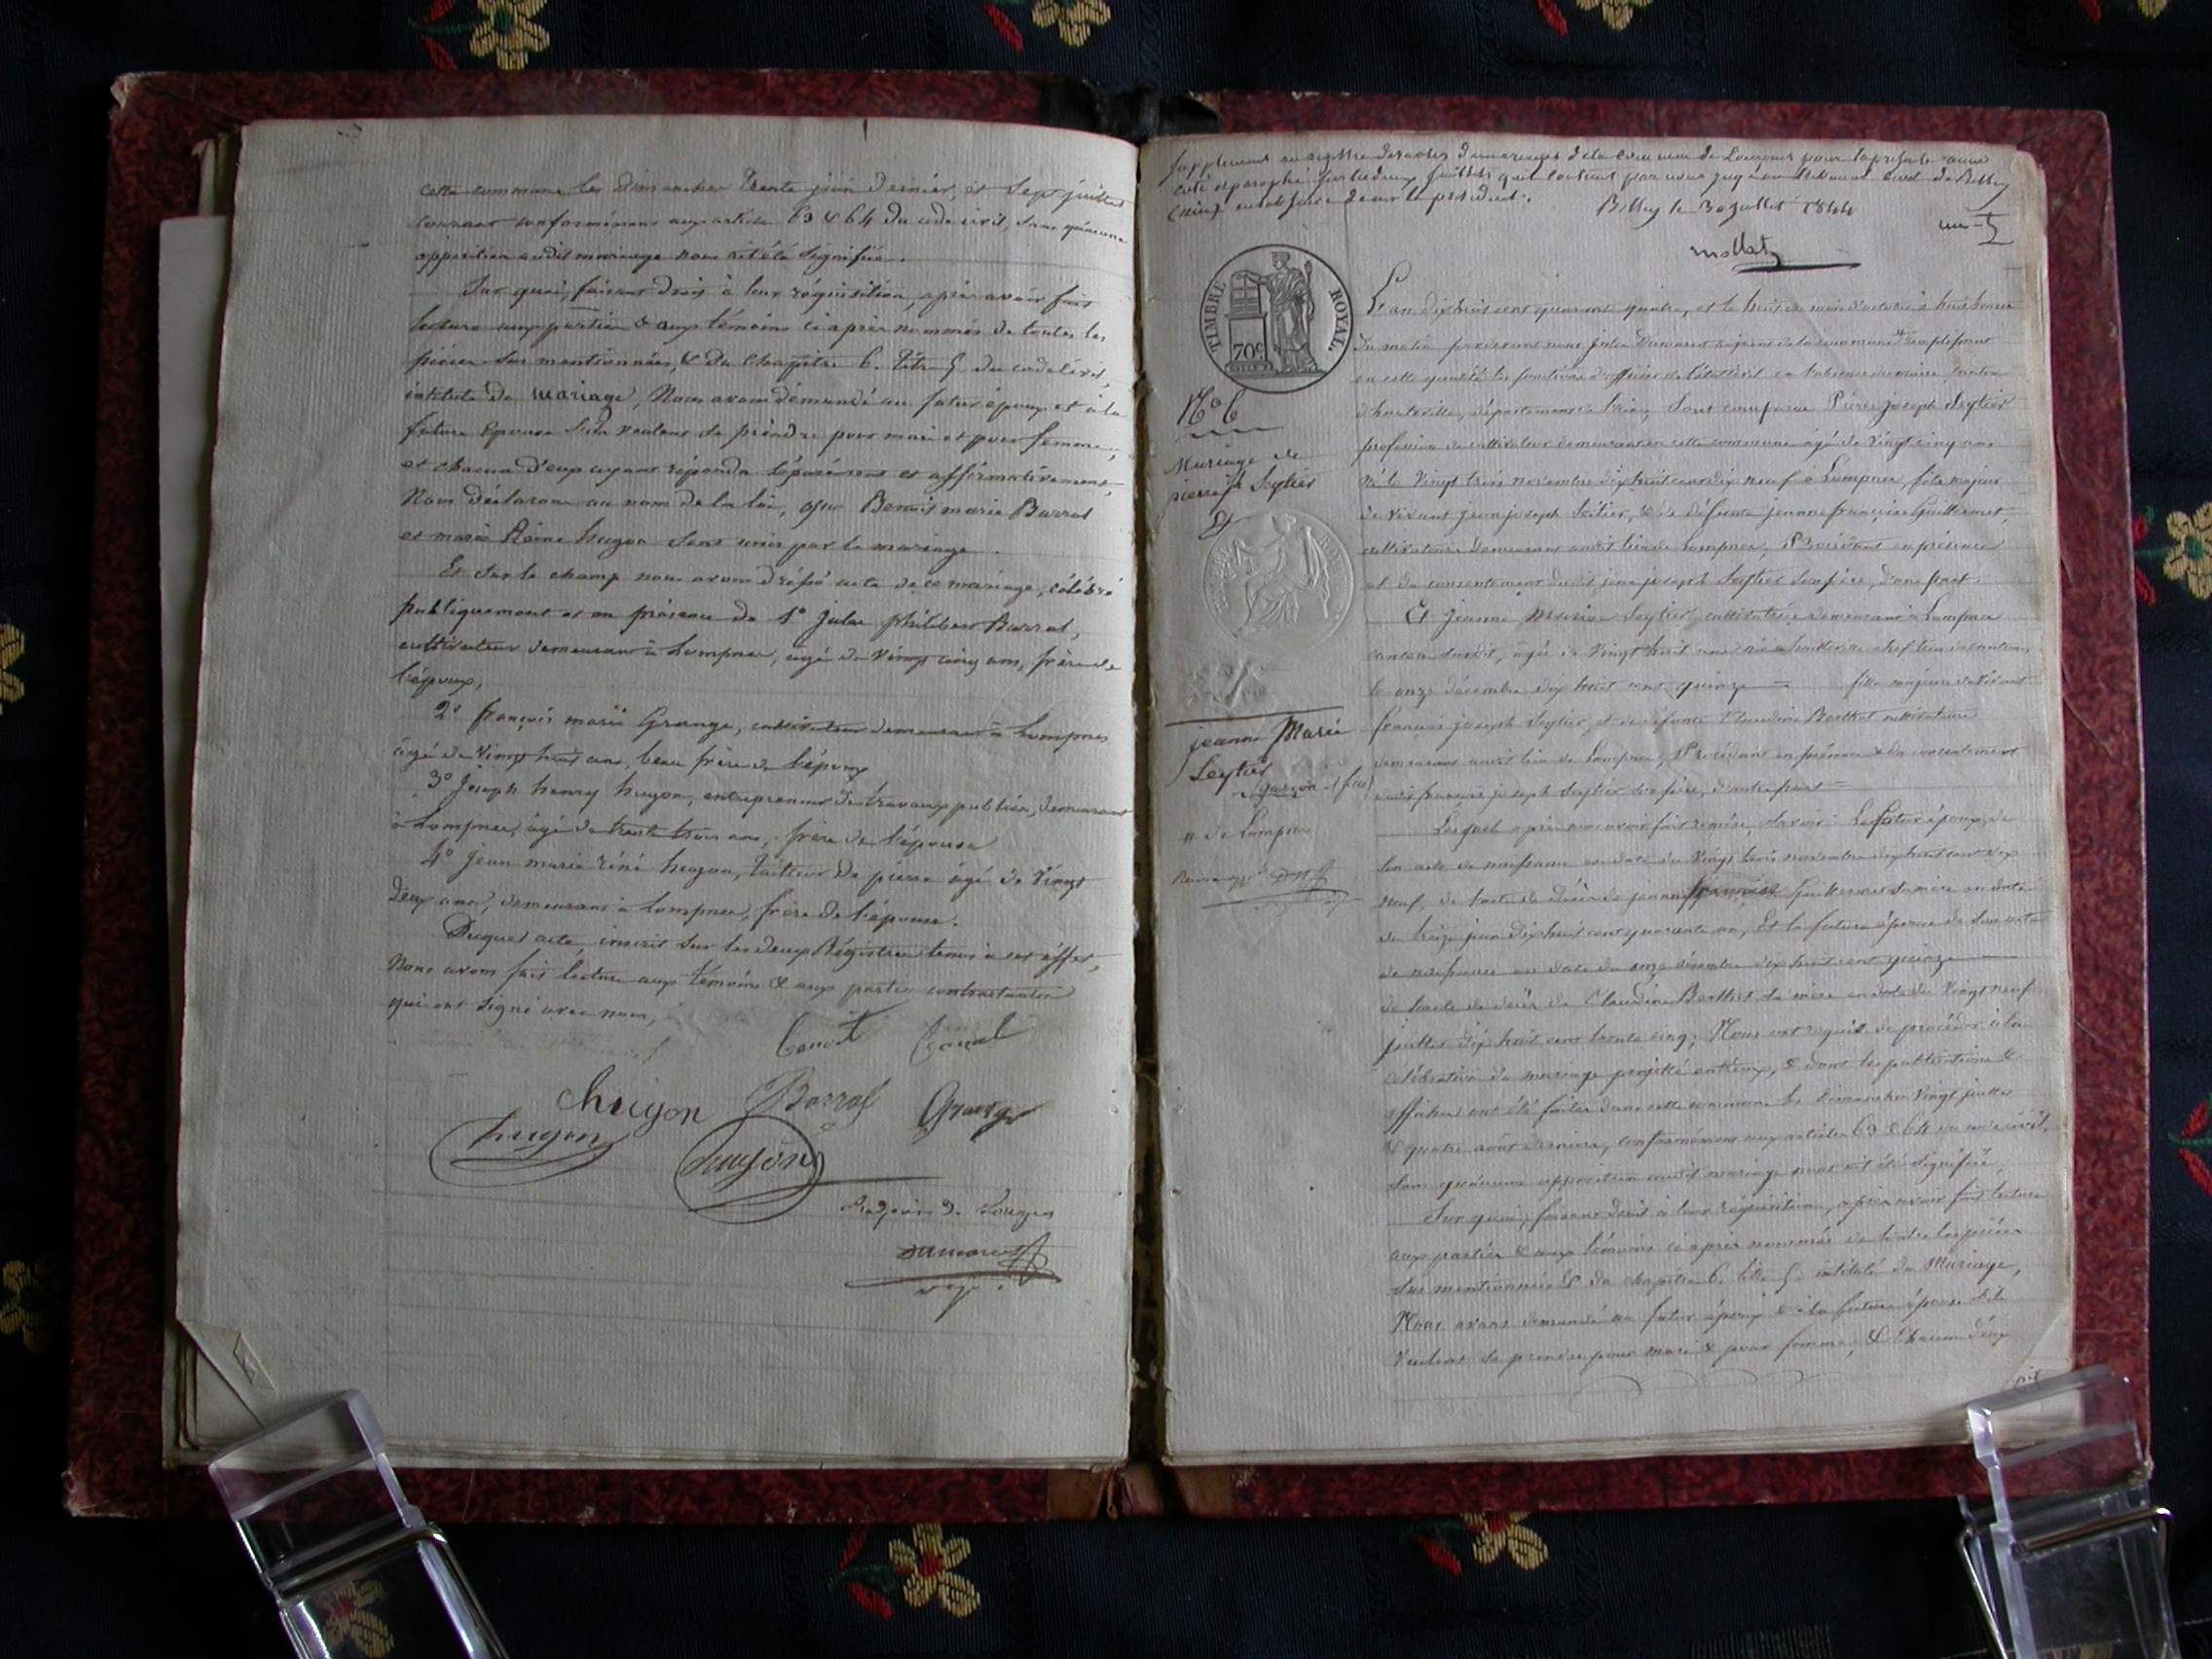 cette commune les dimanches trente juin dernier, et sept juillet
courant conformément aux articles 63 & 64 du code civil, sans qu'aucune
opposition audit mariage nous ait été signifiée.
Sur quoi, faisant droit à leur réquisition, après avoir fait
lecture aux parties & aux témoins ci après nommés de toutes les
pièces sus mentionnées, & du chapitre 6. titre 5 du code civil,
intitulé du mariage, Nous avons demandé au futur époux et à la
future épouse s'ils veulent se prendre pour mari et pour femme,
et chacun d'eux ayant répondu séparément et affirmativement,
Nous déclarons au nom de la loi, que Benoit marie Barral
et marie Reine hugon sont unis par le mariage.
Et sur le champ nous avons dréssé acte de ce mariage, célébré
publiquement et en présence de 1° Jules philibert Barral,
cultivateur demeurant à Lompnes, âgé de vingt cinq ans, frère de
l'époux,
2° françois marie Grange, cultivateur demeurant à Lompnes
âgé de vingt huit ans, beau frère de l'époux
3° Joseph henry hugon, entrepreneur de travaux publics, demeurant
à Lompnes, âgé de trente trois ans, frère de l'épouse
4° Jean marie réné hugon, tailleur de pierre âgé de vingt
deux ans, demeurant à Lompnes, frère de l'épouse.
Duquel acte, inscrit sur les deux Régistres tenus à cet éffet,
Nous avons fait lecture aux témoins & aux parties contractantes
qui ont signé avec nous,
benoit Baral
hugon Barral Grange
hugon hugon
L'adjoint de Lompnes
Dumarest
Supplément au registre des actes de mariages de la commune de Lompnes pour la présente année
coté et paraphé sur les deux feuillets qui le contient par nous juge au tribunal civil de Belley
(ain) en l'absence de mr le président.
Belley le 30 juillet 1844
un
mollat
TIMBRE ROYAL
70c
N° 6
Mariage de
pierre jh Seytier
&
jeanne Marie
Seytier
1 garçon 1 fille
de Lompnes
L'an dix huit cent quarante quatre, et le huit du mois d'octobre à huit heures
du matin pardevant nous Jules Dumarest adjoint de la commune remplissant
en cette qualité les fonctions d'officier de l'état civil en l'absence du maire, canton
d'hauteville, département de l'ain, Sont comparus Pierre joseph Seytier
profession de cultivateur demeurant en cette commune âgé de vingt cinq ans
Né le Vingt trois novembre dix huit cent dix neuf à Lompnes, fils majeur
de vivant jean joseph Seitier, & de défunte jeanne françoise Guillermet,
cultivateurs demeurant audit lieu de Lompnes, Procédant en présence
et du consentement dudit jean joseph Seytier son père, d'une part.
Et Jeanne Marie Seytier, cultivatrice demeurant à Lompnes
canton susdit, âgée de Vingt huit ans née à hauteville chef lieu de canton
le onze décembre dix huit cent quinze = fille majeure de vivant
françois joseph Seytier, et de défunte Claudine Berthet cultivateurs
demeurant audit lieu de Lompnes, Procédant en présence & du consentement
dudit françois joseph Seytier son père, d'autre part =
Lesquels après nous avoir fait remise, Savoir: Le futur époux, de
son acte de naissance en date du vingt trois novembre dix huit cent dix
neuf, de l'acte de décès de jeanne françoise Guillermet sa mère en date
du treize juin dix huit cent quarante un, Et la future épouse de son acte
de naissance en date du onze décembre dix huit cent quinze
de l'acte de décès de Claudine Berthet sa mère en date du Vingt neuf
juillet dix huit cent trente cinq; Nous ont requis de procéder à la
célébration du mariage projetté entr'eux, & dont les publications &
affiches ont été faites dans cette commune les dimanches vingt juillet
& quatre août derniers, conformément aux articles 63 & 64 du code civil,
sans qu'aucune opposition audit mariage nous ait été signifiée.
Sur quoi, faisant droit à leur réquisition, après avoir fait lecture
aux parties & aux témoins ci après nommés de toutes les pièces
sus mentionnées & du chapitre 6. titre 5. intitulé du Mariage,
Nous avons demandé au futur époux & à la future épouse s'ils
veulent se prendre pour mari & pour femme, & chacun d'eux